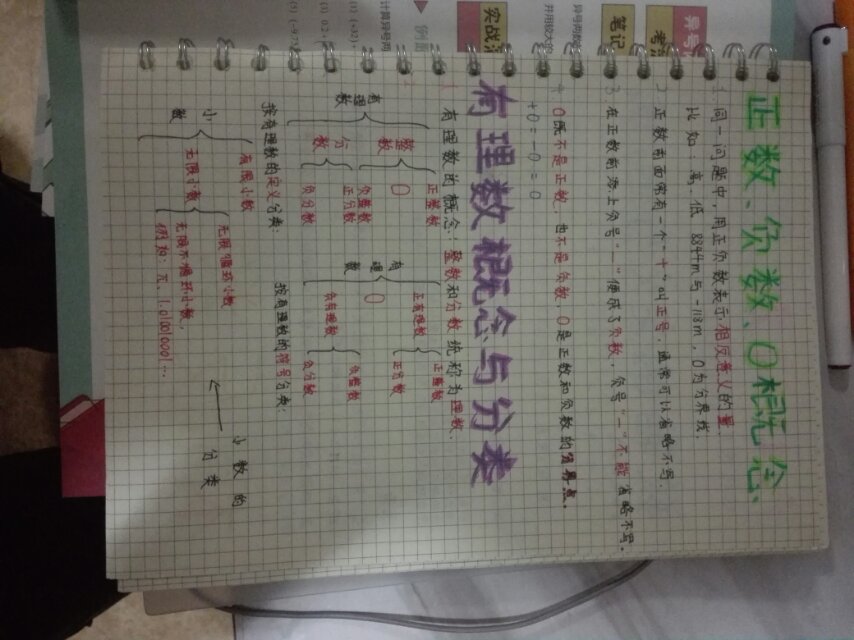 正数、负数、0概念
1 同一问题中,用正负数表示相反意义的量.
比如:高、低 8844m与-118m,0为分界线.
2 正数前面带有一个"+"叫正号,通常可以省略不写.
3 在正数前添上负号"—"便成了负数,负号"—"不能省略不写.
4 0既不是正数,也不是负数,0是正数和负数的分界点.
+0=-0=0
有理数概念与分类
1 有理数的概念:整数和分数统称为理数、
有理数
整数
正整数
0
负整数
分数
正分数
负分数
按有理数的定义分类:
有理数
正有理数
正整数
正分数
0
负有理数
负整数
负分数
按有理数的符号分类:
小数
有限小数
无限小数
无限循环小数
无限不循环小数,
例如:π、
小数的
分类
异号
考
笔记
异号两数
并用较大的
实战
例
计算异号两
(1) (+32)+
(3) 0.2+